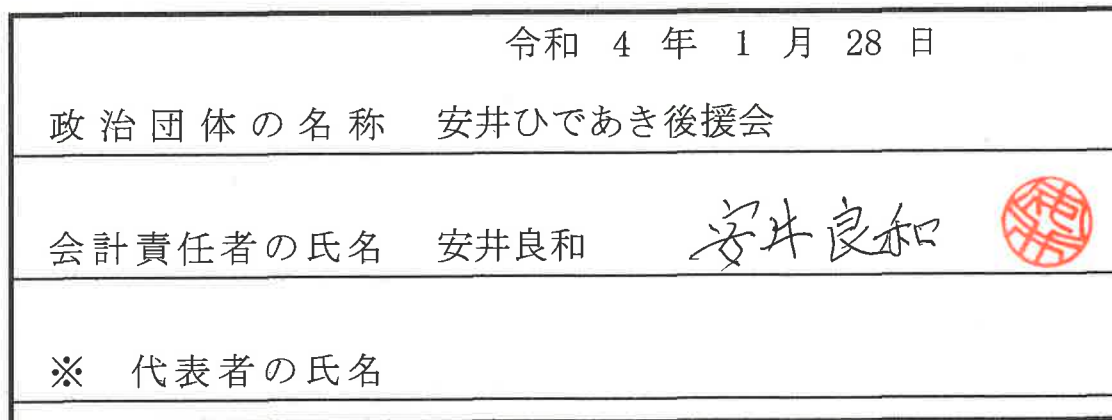 令和 4 年 1 月 28 日
政治団体の名称 安井ひであき後援会
会計責任者の氏名 安井良和 安井良和
※ 代表者の氏名